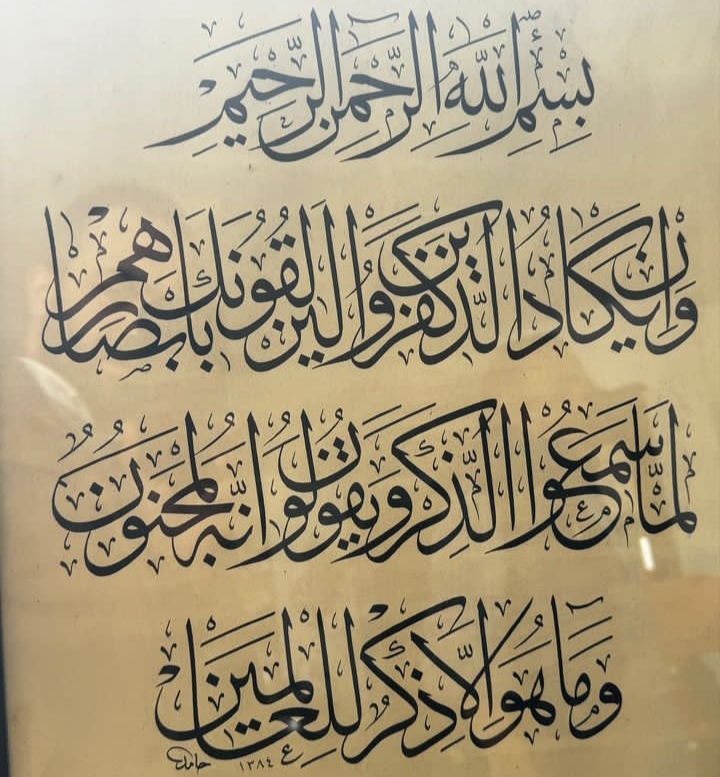 بِسْمِ اللّٰهِ الرَّحْمٰنِ الرَّحِيمِ
وَاِنْ يَكَادُ الَّذِينَ كَفَرُوا لَيُزْلِقُونَكَ بِاَبْصَارِهِمْ
لَمَّا سَمِعُوا الذِّكْرَ وَيَقُولُونَ اِنَّهُ لَمَجْنُونٌ
وَمَا هُوَ اِلَّا ذِكْرٌ لِلْعَالَمِينَ
حامد ١٣٨٤